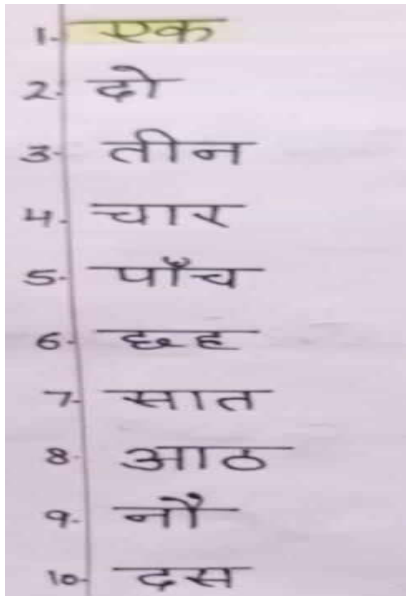 1. एक
2. दो
3. तीन
4. चार
5. पाँच
6. छह
7. सात
8. आठ
9. नौ
10. दस